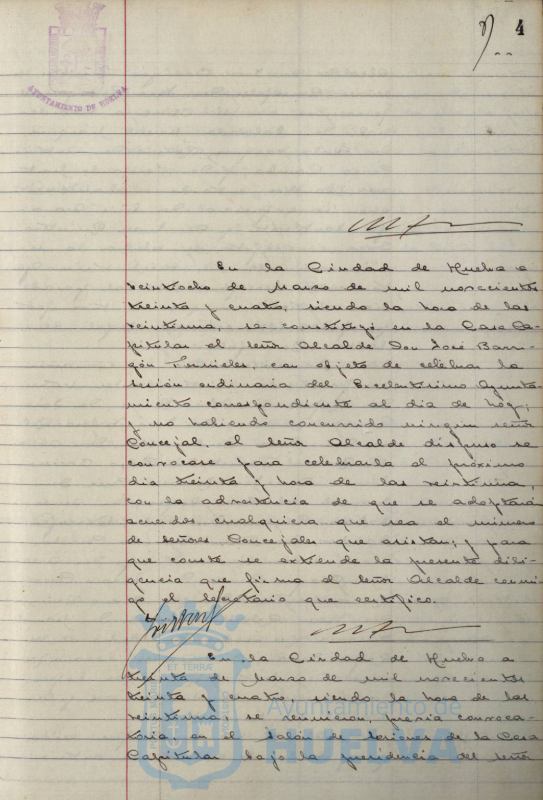 4
AYUNTAMIENTO DE HUELVA
En la Ciudad de Huelva a
veintiocho de Marzo de mil novecientos
treinta y cuatro, siendo la hora de las
veintiuna, se constituyó en la Casa Ca-
pitular el señor Alcalde Don José Barri-
gón Fornieles, con objeto de celebrar la
sesión ordinaria del Excelentísimo Ayunta-
miento correspondiente al dia de hoy;
y no habiendo concurrido ningun señor
Concejal, el señor Alcalde dispuso se
convocase para celebrarla el próximo
dia treinta y hora de las veintiuna,
con la advertencia de que se adoptarán
acuerdos cualquiera que sea el número
de señores Concejales que asistan; y para
que conste se extiende la presente dili-
gencia que firma el señor Alcalde conmi-
go el Secretario que certifico.
En la Ciudad de Huelva a
treinta de Marzo de mil novecientos
treinta y cuatro, siendo la hora de las
veintiuna, se reunieron, previa convoca-
toria en el Salón de sesiones de la Casa
Capitular bajo la presidencia del señor
ET TERRÆ
Ayuntamiento de
HUELVA